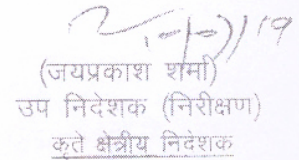 (जयप्रकाश शर्मा)
उप निदेशक (निरीक्षण)
कृते क्षेत्रीय निदेशक